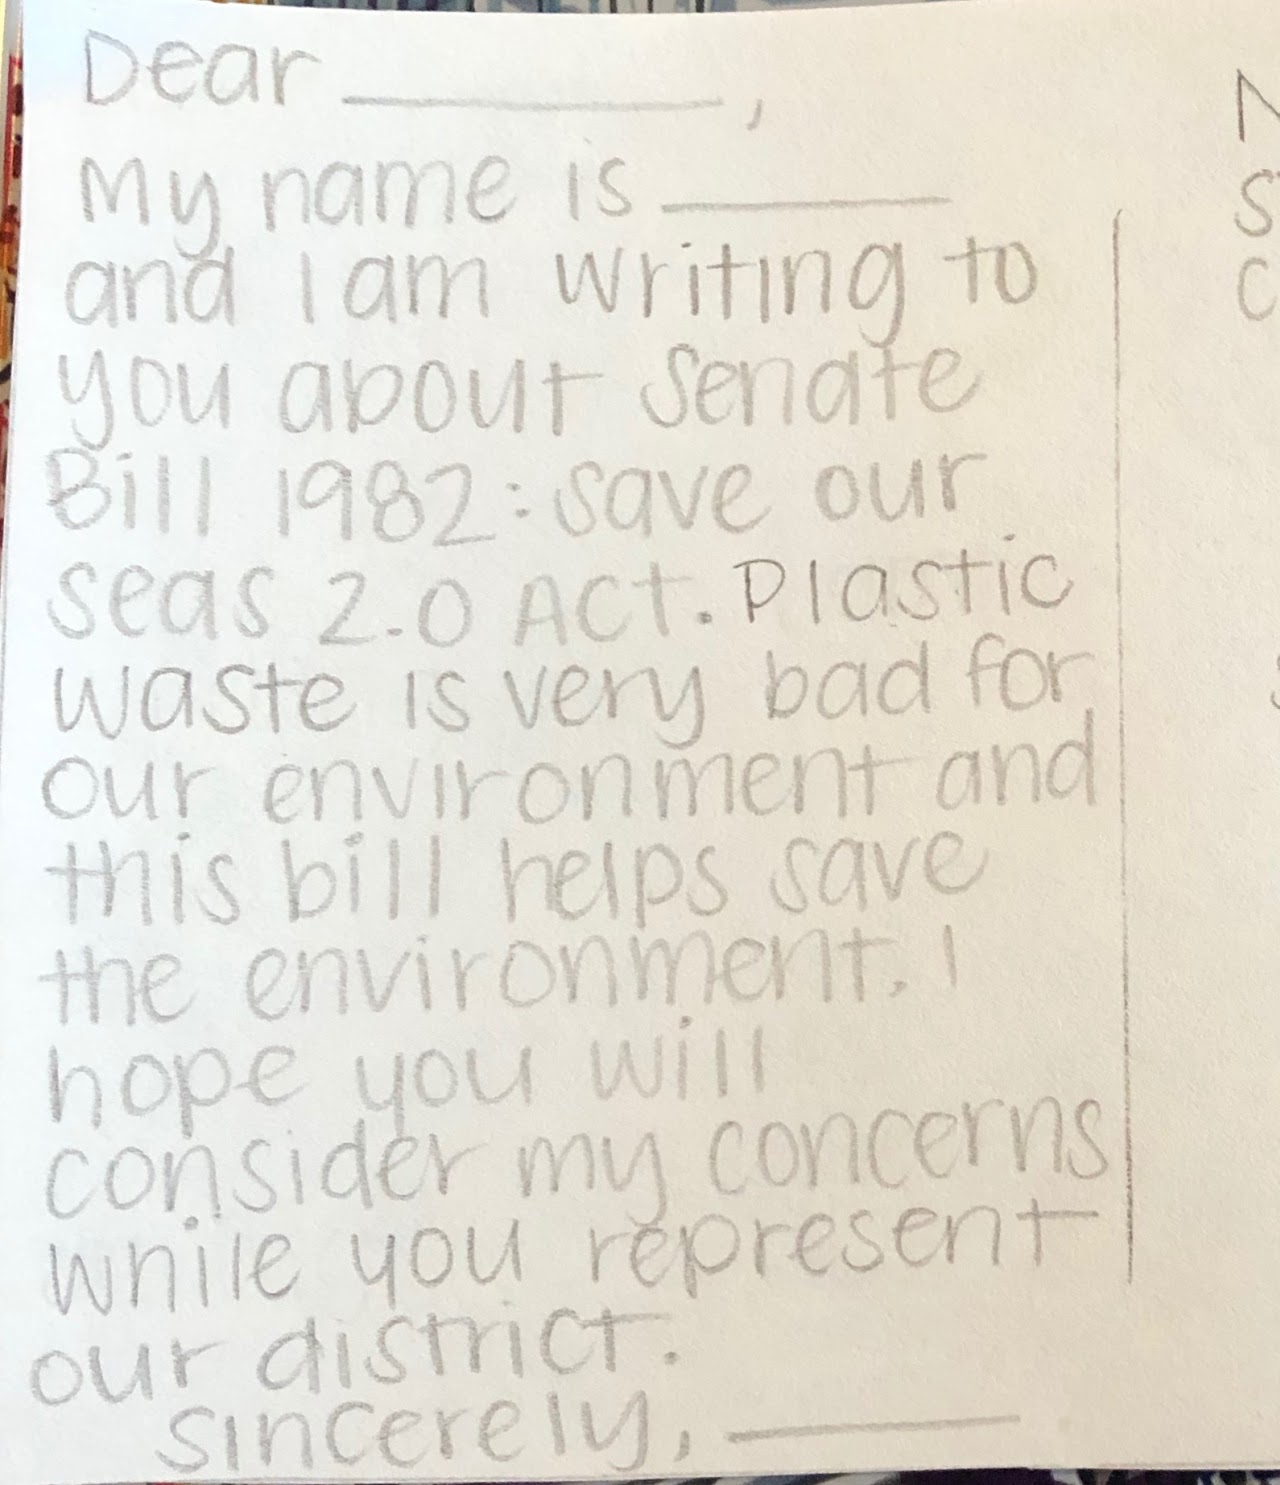 Dear ________,
My name is ________
and I am writing to
you about Senate
Bill 1982: save our
seas 2.0 Act. Plastic
waste is very bad for
our environment and
this bill helps save
the environment. I
hope you will
consider my concerns
while you represent
our district.
Sincerely, ________